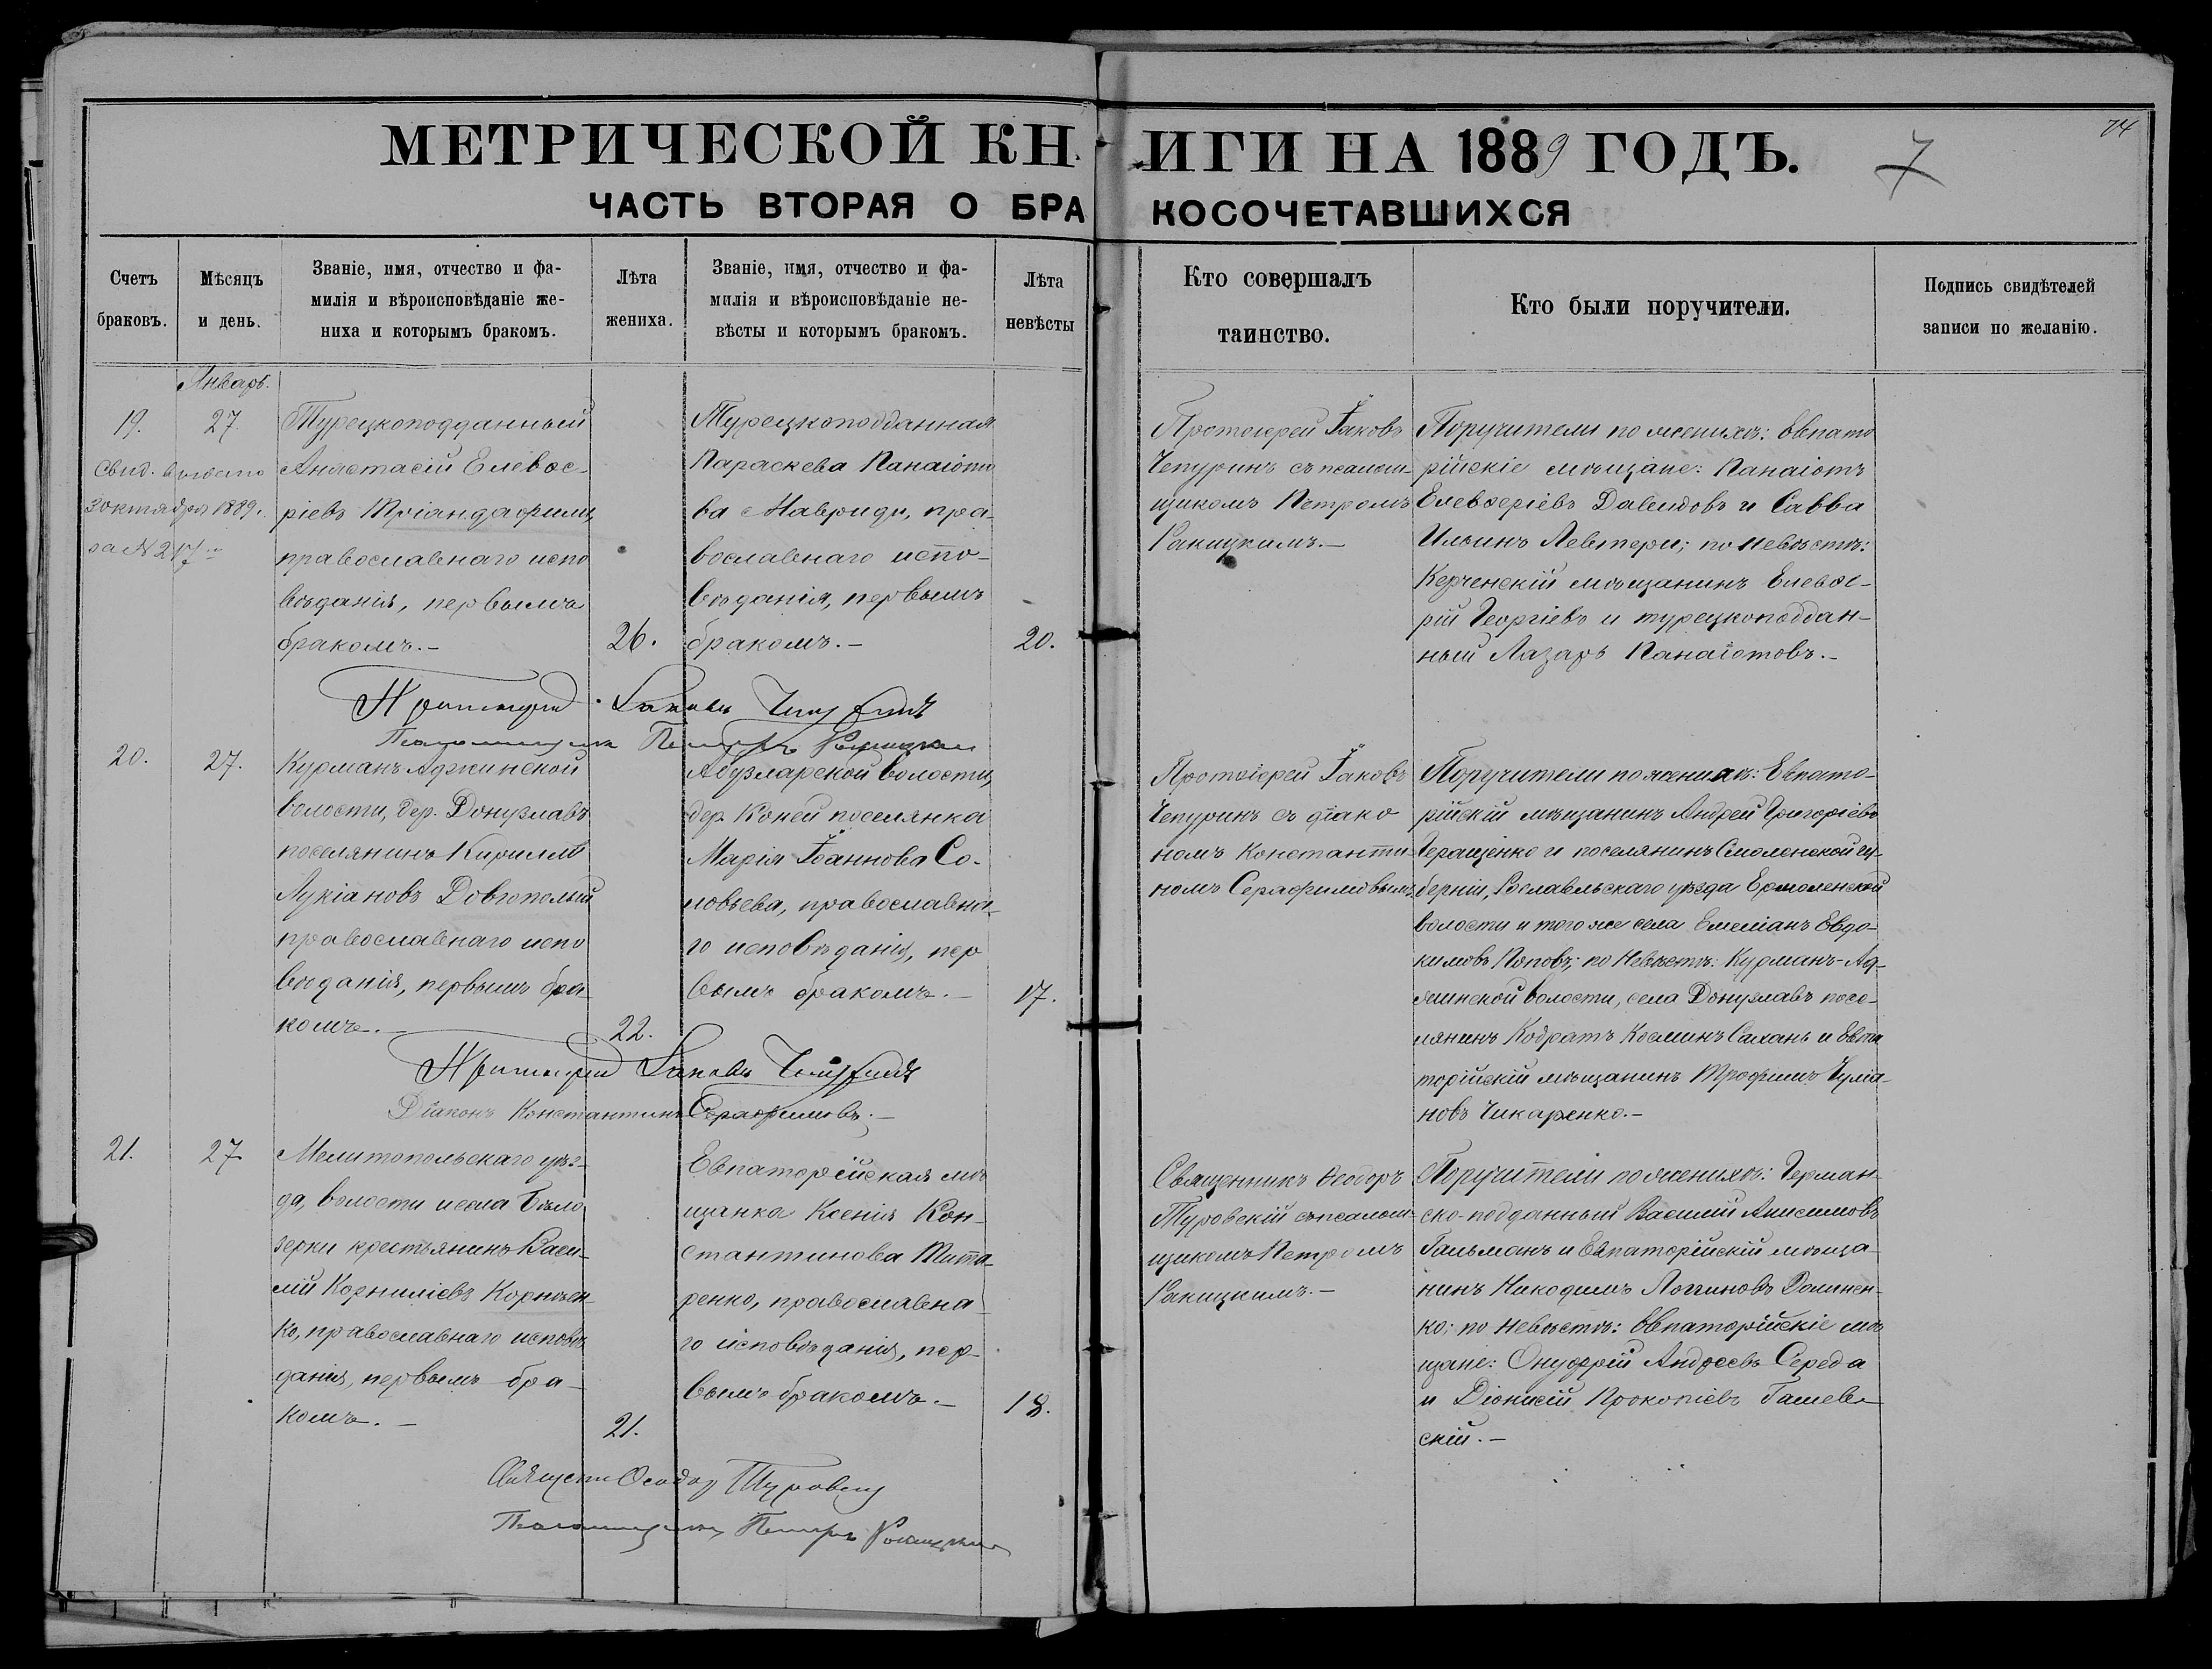 МЕТРИЧЕСКОЙ КНИГИ НА 1889 ГОДЪ.
7
74
ЧАСТЬ ВТОРАЯ О БРАКОСОЧЕТАВШИХСЯ
Счетъ
браковъ.
Мѣсяцъ
и день.
Званіе, имя, отчество и фа-
милія и вѣроисповѣданіе же-
ниха и которымъ бракомъ.
Лѣта
жениха.
Званіе, имя, отчество и фа-
милія и вѣроисповѣданіе не-
вѣсты и которымъ бракомъ.
Лѣта
невѣсты
Кто совершалъ
таинство.
Кто были поручители.
Подпись свидѣтелей
записи по желанію.
Январь.
19.
Свид. выдано
3 октября 1889 г.
за № 217
27.
Турецкоподданный
Анастасій Елевѳе-
ріевъ Тріандафили,
православнаго испо
вѣданія, первымъ
бракомъ.—
26.
Турецкоподданная
Параскева Панаіото
ва Мавриди, пра-
вославнаго испо-
вѣданія, первымъ
бракомъ.—
20.
Протоіерей Іаковъ
Чепуринъ съ псалом-
щикомъ Петромъ
Ракицкимъ.—
Поручители по женихѣ: Евпато
рійскіе мѣщане: Панаіотъ
Елевѳеріевъ Давидовъ и Савва
Ильинъ Левтери; по невѣстѣ:
Керченскій мѣщанинъ Елевѳе-
рій Георгіевъ и турецкоподдан-
ный Лазарь Панаіотовъ.—
Протоіерей Іаковъ Чепуринъ
Псаломщикъ Петръ Ракицкій
20.
27.
Курманъ Аджинской
волости, дер. Донузлавъ
поселянинъ Кириллъ
Лукіановъ Довгополый
православнаго испо
вѣданія, первымъ бра-
комъ.—
22.
Абузларской волости,
дер. Коней поселянка
Марія Іоаннова Со-
ловьева, православна-
го исповѣданія, пер
вымъ бракомъ.—
17.
Протоіерей Іаковъ
Чепуринъ съ діако
номъ Константи-
номъ Серафимовымъ.
Поручители по женихѣ: Евпато-
рійскій мѣщанинъ Андрей Григоріевъ
Геращенко и поселянинъ Смоленской гу-
берніи, Рославльскаго уѣзда Ермоленской
волости и того же села Емеліанъ Евдо-
кимовъ Поповъ; по невѣстѣ: Курманъ-Ад-
жинской волости, села Донузлавъ посе-
лянинъ Кодратъ Косминъ Сахань и Евпа
торійскій мѣщанинъ Трофимъ Іуліа-
новъ Чикаренко.—
Протоіерей Іаковъ Чепуринъ
Діаконъ Константинъ Серафимовъ.—
21.
27.
Мелитопольскаго уѣз-
да, волости и села Бѣло
зерки крестьянинъ Васи-
лій Корниліевъ Корнѣен-
ко, православнаго исповѣ
данія, первымъ бра-
комъ.—
21.
Евпаторійская мѣ
щанка Ксенія Кон-
стантинова Тита-
ренко, православна-
го исповѣданія, пер-
вымъ бракомъ.—
18.
Священникъ Ѳеодоръ
Туровскій съ псалом-
щикомъ Петромъ
Ракицкимъ.—
Поручители по женихѣ: Герман-
ско-подданный Василій Анисимовъ
Гальманъ и Евпаторійскій мѣща-
нинъ Никодимъ Логгиновъ Доминен-
ко; по невѣстѣ: Евпаторійскіе мѣ
щане: Онуфрій Андреевъ Середа
и Діонисій Прокопіевъ Гашев-
скій.—
Священникъ Ѳеодоръ Туровскій
Псаломщикъ Петръ Ракицкій